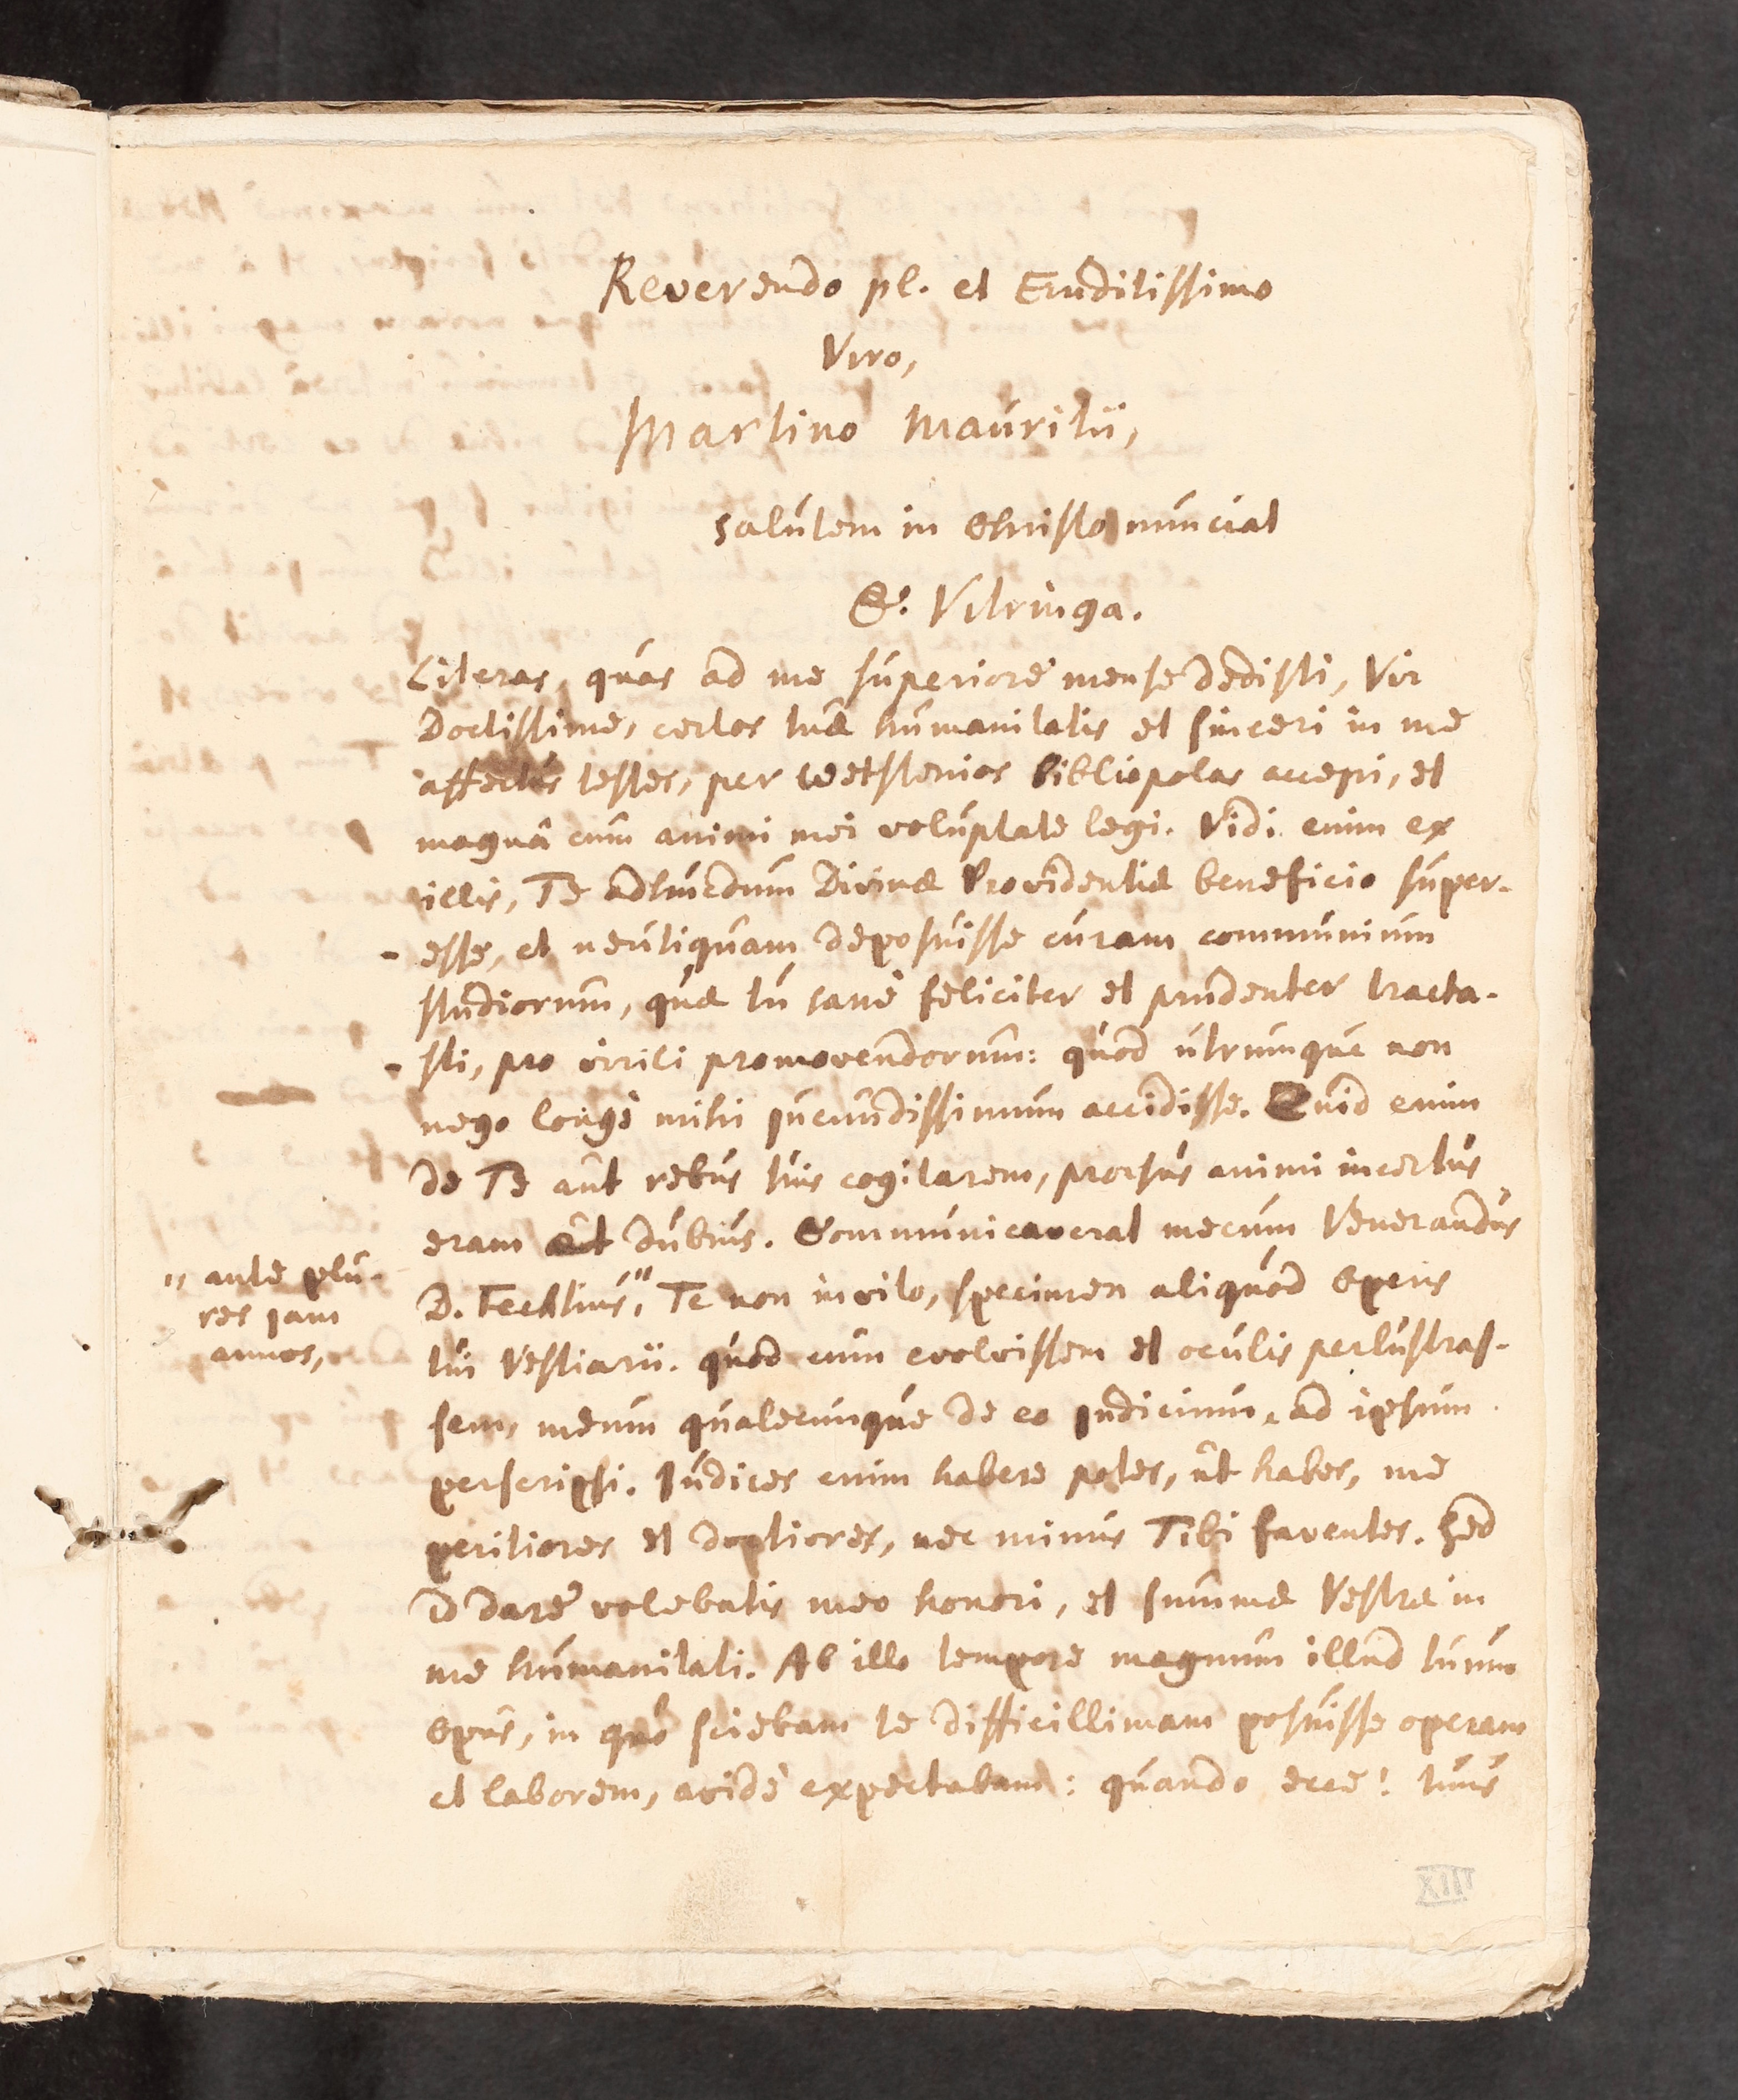 Reverendo pl. et Eruditissimo
Viro,
Martino Mauritii,
salutem in Christo nunciat
C. Vitringa.
Literas, quas ad me superiore mense dedisti, Vir
Doctissime, certos tuæ humanitatis et sinceri in me
affectus testes, per Wetstenios bibliopolas accepi, et
magnâ cum animi mei voluptate legi. Vidi enim ex
illis, Te adhucdum Divinæ Providentiæ beneficio super-
- esse, et neutiquam deposuisse curam communium
studiorum, quæ tu sane feliciter et prudenter tracta-
- sti, pro virili promovendorum: quod utrumque non
nego longè mihi jucundissimum accidisse. Quid enim
de Te aut rebus tuis cogitarem, prorsus animi incertus
eram aut dubius. Communicaverat mecum Venerandus
D. Fechtius," Te non invito, specimen aliquod Operis
" ante plu-
res jam
annos,
tui Vestiarii. quod cum evolvissem et oculis perlustras-
sem, meum qualecunque de eo judicium ad ipsum
perscripsi. Judices enim habere potes, ut habes, me
peritiores et doctiores, nec minus Tibi faventes. Sed
id dare volebatis meo honori, et summæ Vestræ in
me humanitati. Ab illo tempore magnum illud tuum
Opus, in quo sciebam te difficillimam posuisse operam
et laborem, avidè expectabam: quando ecce! tuus
XIII